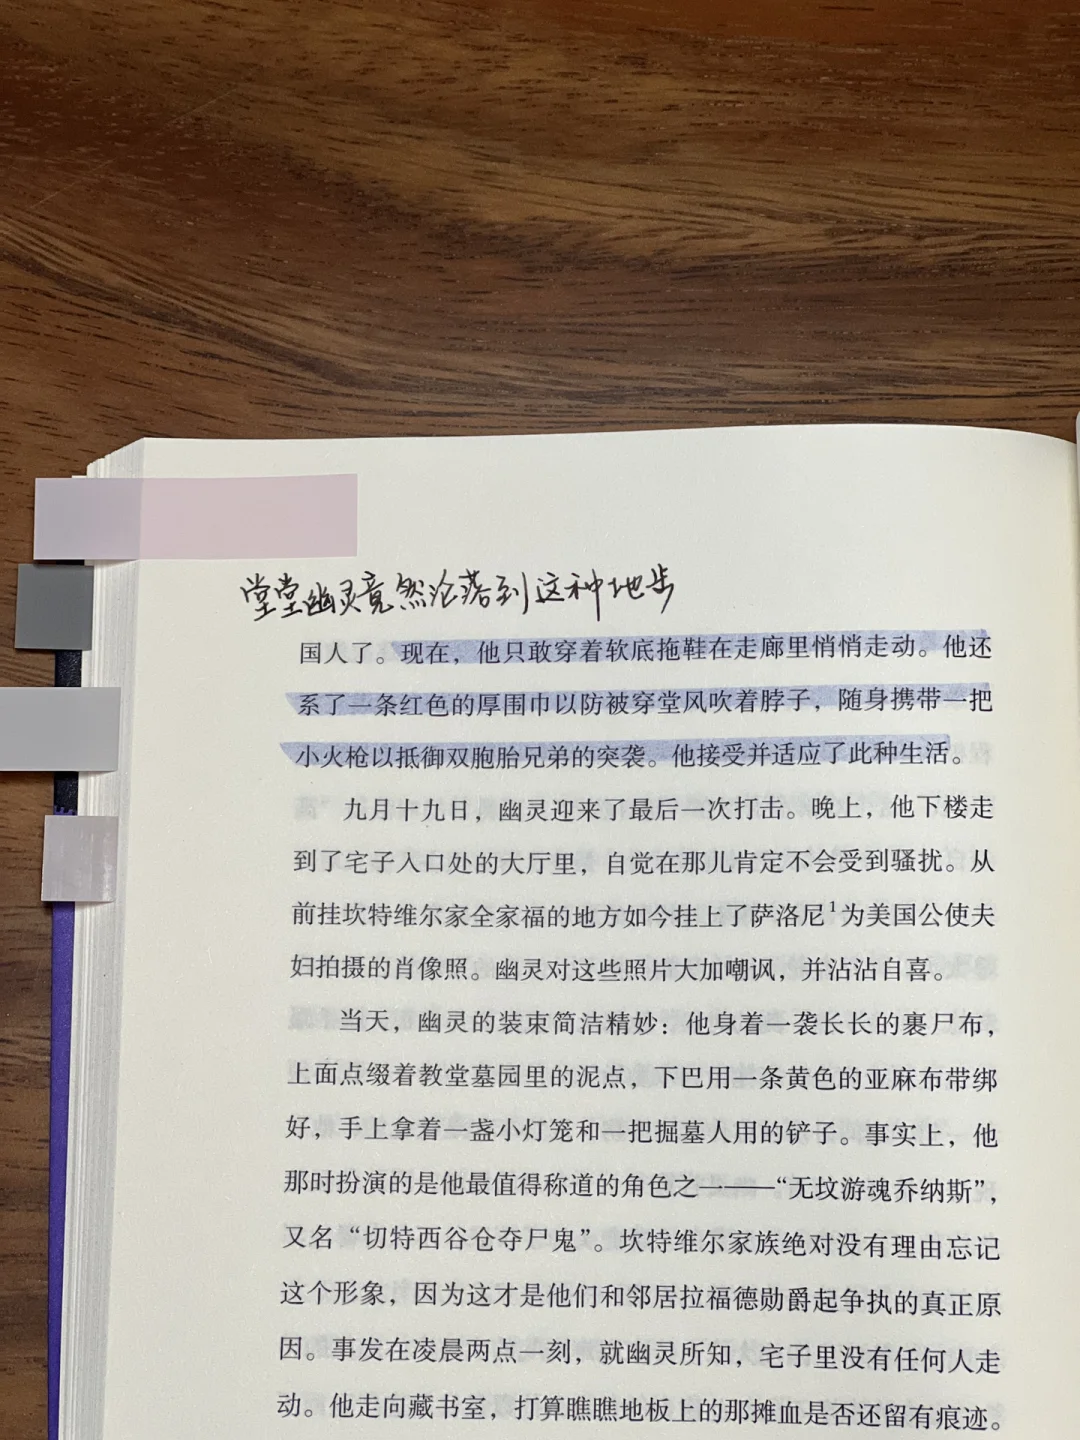 堂堂幽灵竟然沦落到这种地步
国人了。现在，他只敢穿着软底拖鞋在走廊里悄悄走动。他还
系了一条红色的厚围巾以防被穿堂风吹着脖子，随身携带一把
小火枪以抵御双胞胎兄弟的突袭。他接受并适应了此种生活。
九月十九日，幽灵迎来了最后一次打击。晚上，他下楼走
到了宅子入口处的大厅里，自觉在那儿肯定不会受到骚扰。从
前挂坎特维尔家全家福的地方如今挂上了萨洛尼1为美国公使夫
妇拍摄的肖像照。幽灵对这些照片大加嘲讽，并沾沾自喜。
当天，幽灵的装束简洁精妙：他身着一袭长长的裹尸布，
上面点缀着教堂墓园里的泥点，下巴用一条黄色的亚麻布带绑
好，手上拿着一盏小灯笼和一把掘墓人用的铲子。事实上，他
那时扮演的是他最值得称道的角色之一——“无坟游魂乔纳斯”，
又名“切特西谷仓夺尸鬼”。坎特维尔家族绝对没有理由忘记
这个形象，因为这才是他们和邻居拉福德勋爵起争执的真正原
因。事发在凌晨两点一刻，就幽灵所知，宅子里没有任何人走
动。他走向藏书室，打算瞧瞧地板上的那摊血是否还留有痕迹。